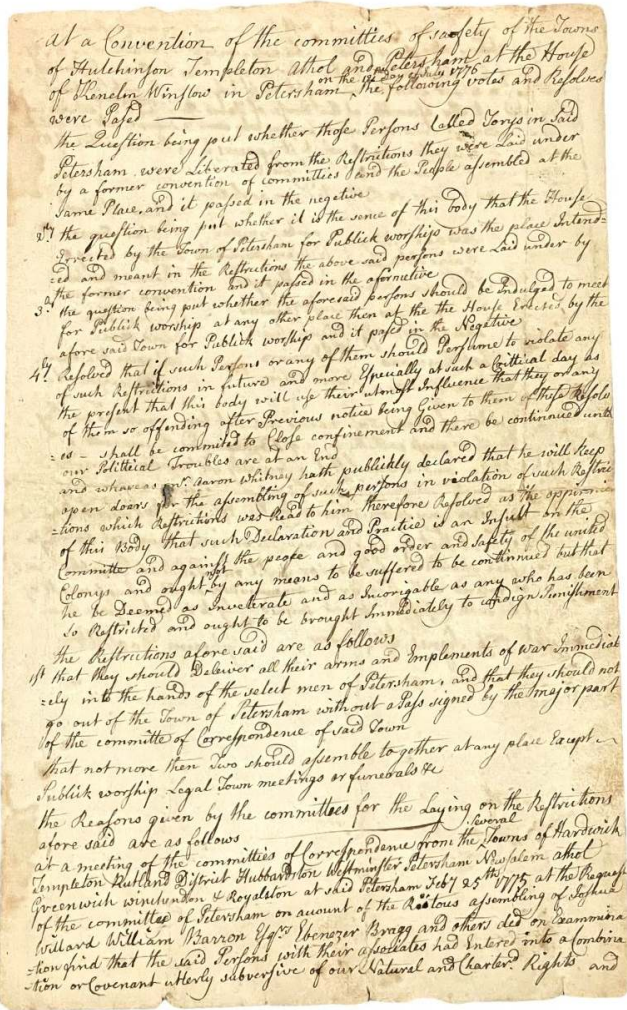 at a Convention of the committees of saefety of the Towns
of Hutchinson Templeton Athol and Petersham at the House
on the 1st Day of July 1776
of Kenelm Winslow in Petersham the following votes and Resolves
were Pased
the Question being put whether those Persons Called Torys in Said
Petersham were Liberated from the Restrictions they were Laid under
by a former convention of committies and the People assembled at the
same Place, and it passed in the negative
2ly the question being put whether it is the sence of this body that the House
Errected by the Town of Petersham for Publick worship was the place Intend=
=ed and meant in the Restrictions the above said persons were Laid under by
the former convention and it passed in the afirmative
3d the question being put whether the aforesaid persons should be Indulged to meet
for Publick worship at any other place then at the the House Erected by the
afore said Town for Publick worship and it pased in the Negative
4ly Resolved that if such Persons or any of them should Persume to violate any
of such Restrictions in future and more Especially at such a Critical day as
the present that this body will use their utmost Influence that they or any
of them so offending after Previous notice being Given to them of these Resolv
=es - shall be commited to Close confinement and there be continnued until
our Polittical Troubles are at an End
and whareas mr. Aaron Whitney hath publickly declared that he will keep
open Doars for the assembling of such persons in violation of such Restric
=tions which Restrictions was Read to him therefore Resolved as the oppinnion
of this Body that such Declaration and Practice is an Insult on the
Committe and against the peace and good order and safety of the united
Colonys and ought not by any means to be suffered to be continnued but that
he be Deemed as Inveterate and as Incorigable as any who has been
so Restricted and ought to be brought Immediately to condign Punishment
the Restructions afore said are as follows
1st that they should Deliever all their arms and Implements of war Immediat
=ely into the hands of the select men of Petersham, and that they should not
go out of the Town of Petersham without a Pass signed by the major part
of the committe of Correspondence of said Town
that not more then Two should assemble to gether at any place Except
Publick worship Legal Town meetings or funerals &c
the Reasons given by the committees for the Laying on the Restrictions
afore said are as follows
several
at a meeting of the committies of Correspondence from the Towns of Hardwick
Templeton Rutland District Hubbardston Westminster Petersham New Salem athol
Greenwich winchendon & Royalston at said Petersham Feby 25ths 1775 at the Request
of the committee of Petersham on account of the Riotous assembling of Joshua
Willard William Barron Esqrs Ebenezer Bragg and others did on Exammina
=tion find that the said Persons with their assoliates had Entered into a Combina
=tion or Covenant utterly subversive of our Natural and Charterd Rights and